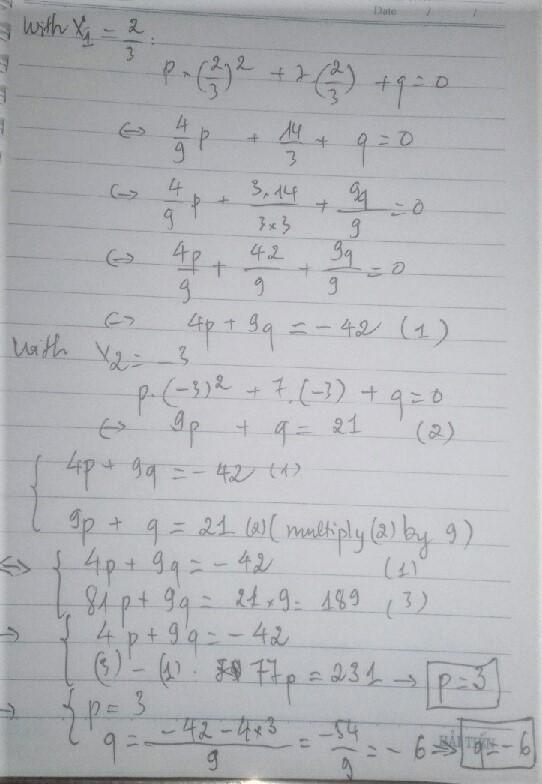 Date / /
With X₁ = 2/3 :
p × (2/3)² + 7(2/3) + q = 0
⇔ 4/9 p + 14/3 + q = 0
⇔ 4/9 p + 3.14/3×3 + 9q/9 = 0
⇔ 4p/9 + 42/9 + 9q/9 = 0
⇔ 4p + 9q = -42 (1)
With X₂ = -3
p.(-3)² + 7.(-3) + q = 0
⇔ 9p + q = 21 (2)
{ 4p + 9q = -42 (1)
9p + q = 21 (2) ( multiply (2) by 9)
⇔ { 4p + 9q = -42 (1)
81p + 9q = 21×9 = 189 (3)
→ { 4p + 9q = -42
(3) - (1) : 77p = 231 → p = 3
→ { p = 3
q = -42 - 4×3 / 9 = -54/9 = -6 ⇒ q = -6